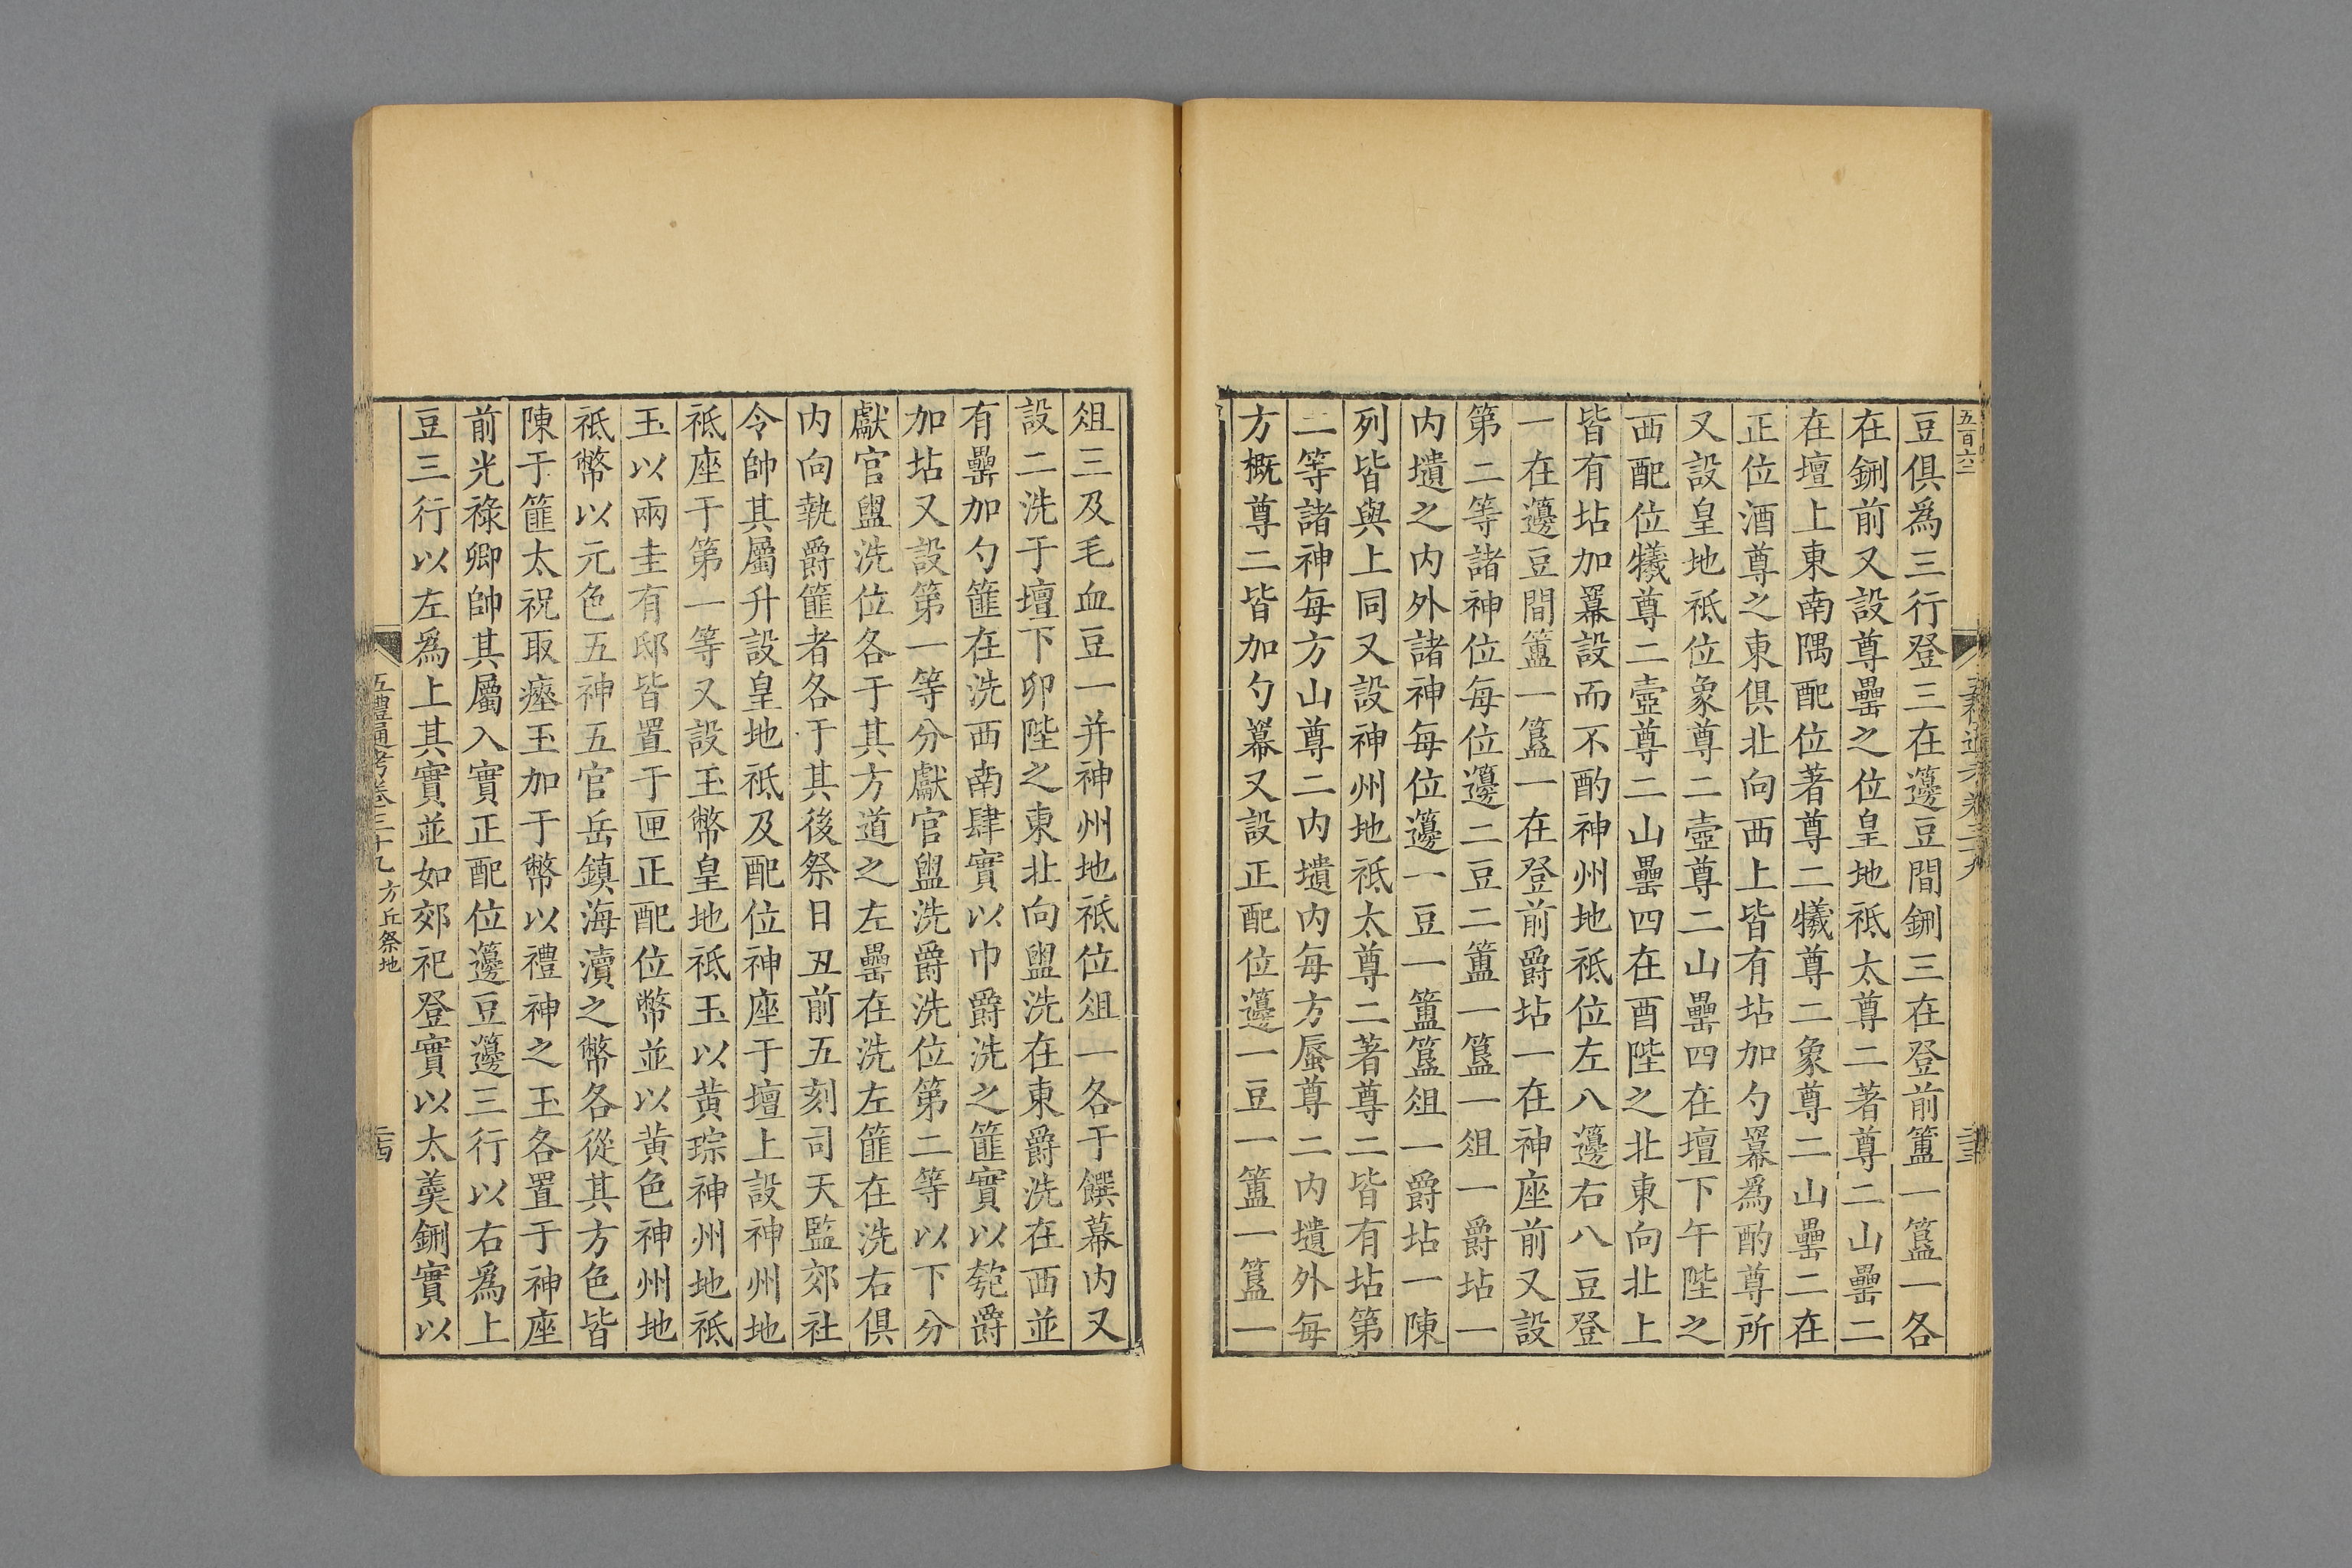 五百六二
豆俱為三行登三在籩豆間鉶三在登前簠一簋一各
在鉶前又設尊罍之位皇地祇太尊二著尊二山罍二
在壇上東南隅配位著尊二犧尊二象尊二山罍二在
正位酒尊之東俱北向西上皆有坫加勺羃為酌尊所
又設皇地祇位象尊二壺尊二山罍四在壇下午陛之
西配位犧尊二壺尊二山罍四在酉陛之北東向北上
皆有坫加羃設而不酌神州地祇位左八籩右八豆登
一在籩豆間簠一簋一在登前爵坫一在神座前又設
第二等諸神位每位籩二豆二簠一簋一俎一爵坫一
内壝之内外諸神每位籩一豆一簠簋俎一爵坫一陳
列皆與上同又設神州地祇太尊二著尊二皆有坫第
二等諸神每方山尊二内壝内每方蜃尊二内壝外每
方概尊二皆加勺羃又設正配位籩一豆一簠一簋一
俎三及毛血豆一并神州地祇位俎一各于饌幕内又
設二洗于壇下卯陛之東北向盥洗在東爵洗在西並
有罍加勺篚在洗西南肆實以巾爵洗之篚實以匏爵
加坫又設第一等分獻官盥洗爵洗位第二等以下分
獻官盥洗位各于其方道之左罍在洗左篚在洗右俱
内向執爵篚者各于其後祭日丑前五刻司天監郊社
令帥其屬升設皇地祇及配位神座于壇上設神州地
祇座于第一等又設玉幣皇地祇玉以黄琮神州地祇
玉以兩圭有邸皆置于匣正配位幣並以黄色神州地
祇幣以元色五神五官岳鎮海瀆之幣各從其方色皆
陳于篚太祝取瘞玉加于幣以禮神之玉各置于神座
前光祿卿帥其屬入實正配位籩豆籩三行以右為上
豆三行以左為上其實並如郊祀登實以太羹鉶實以
五禮通考卷三十九 方丘祭地